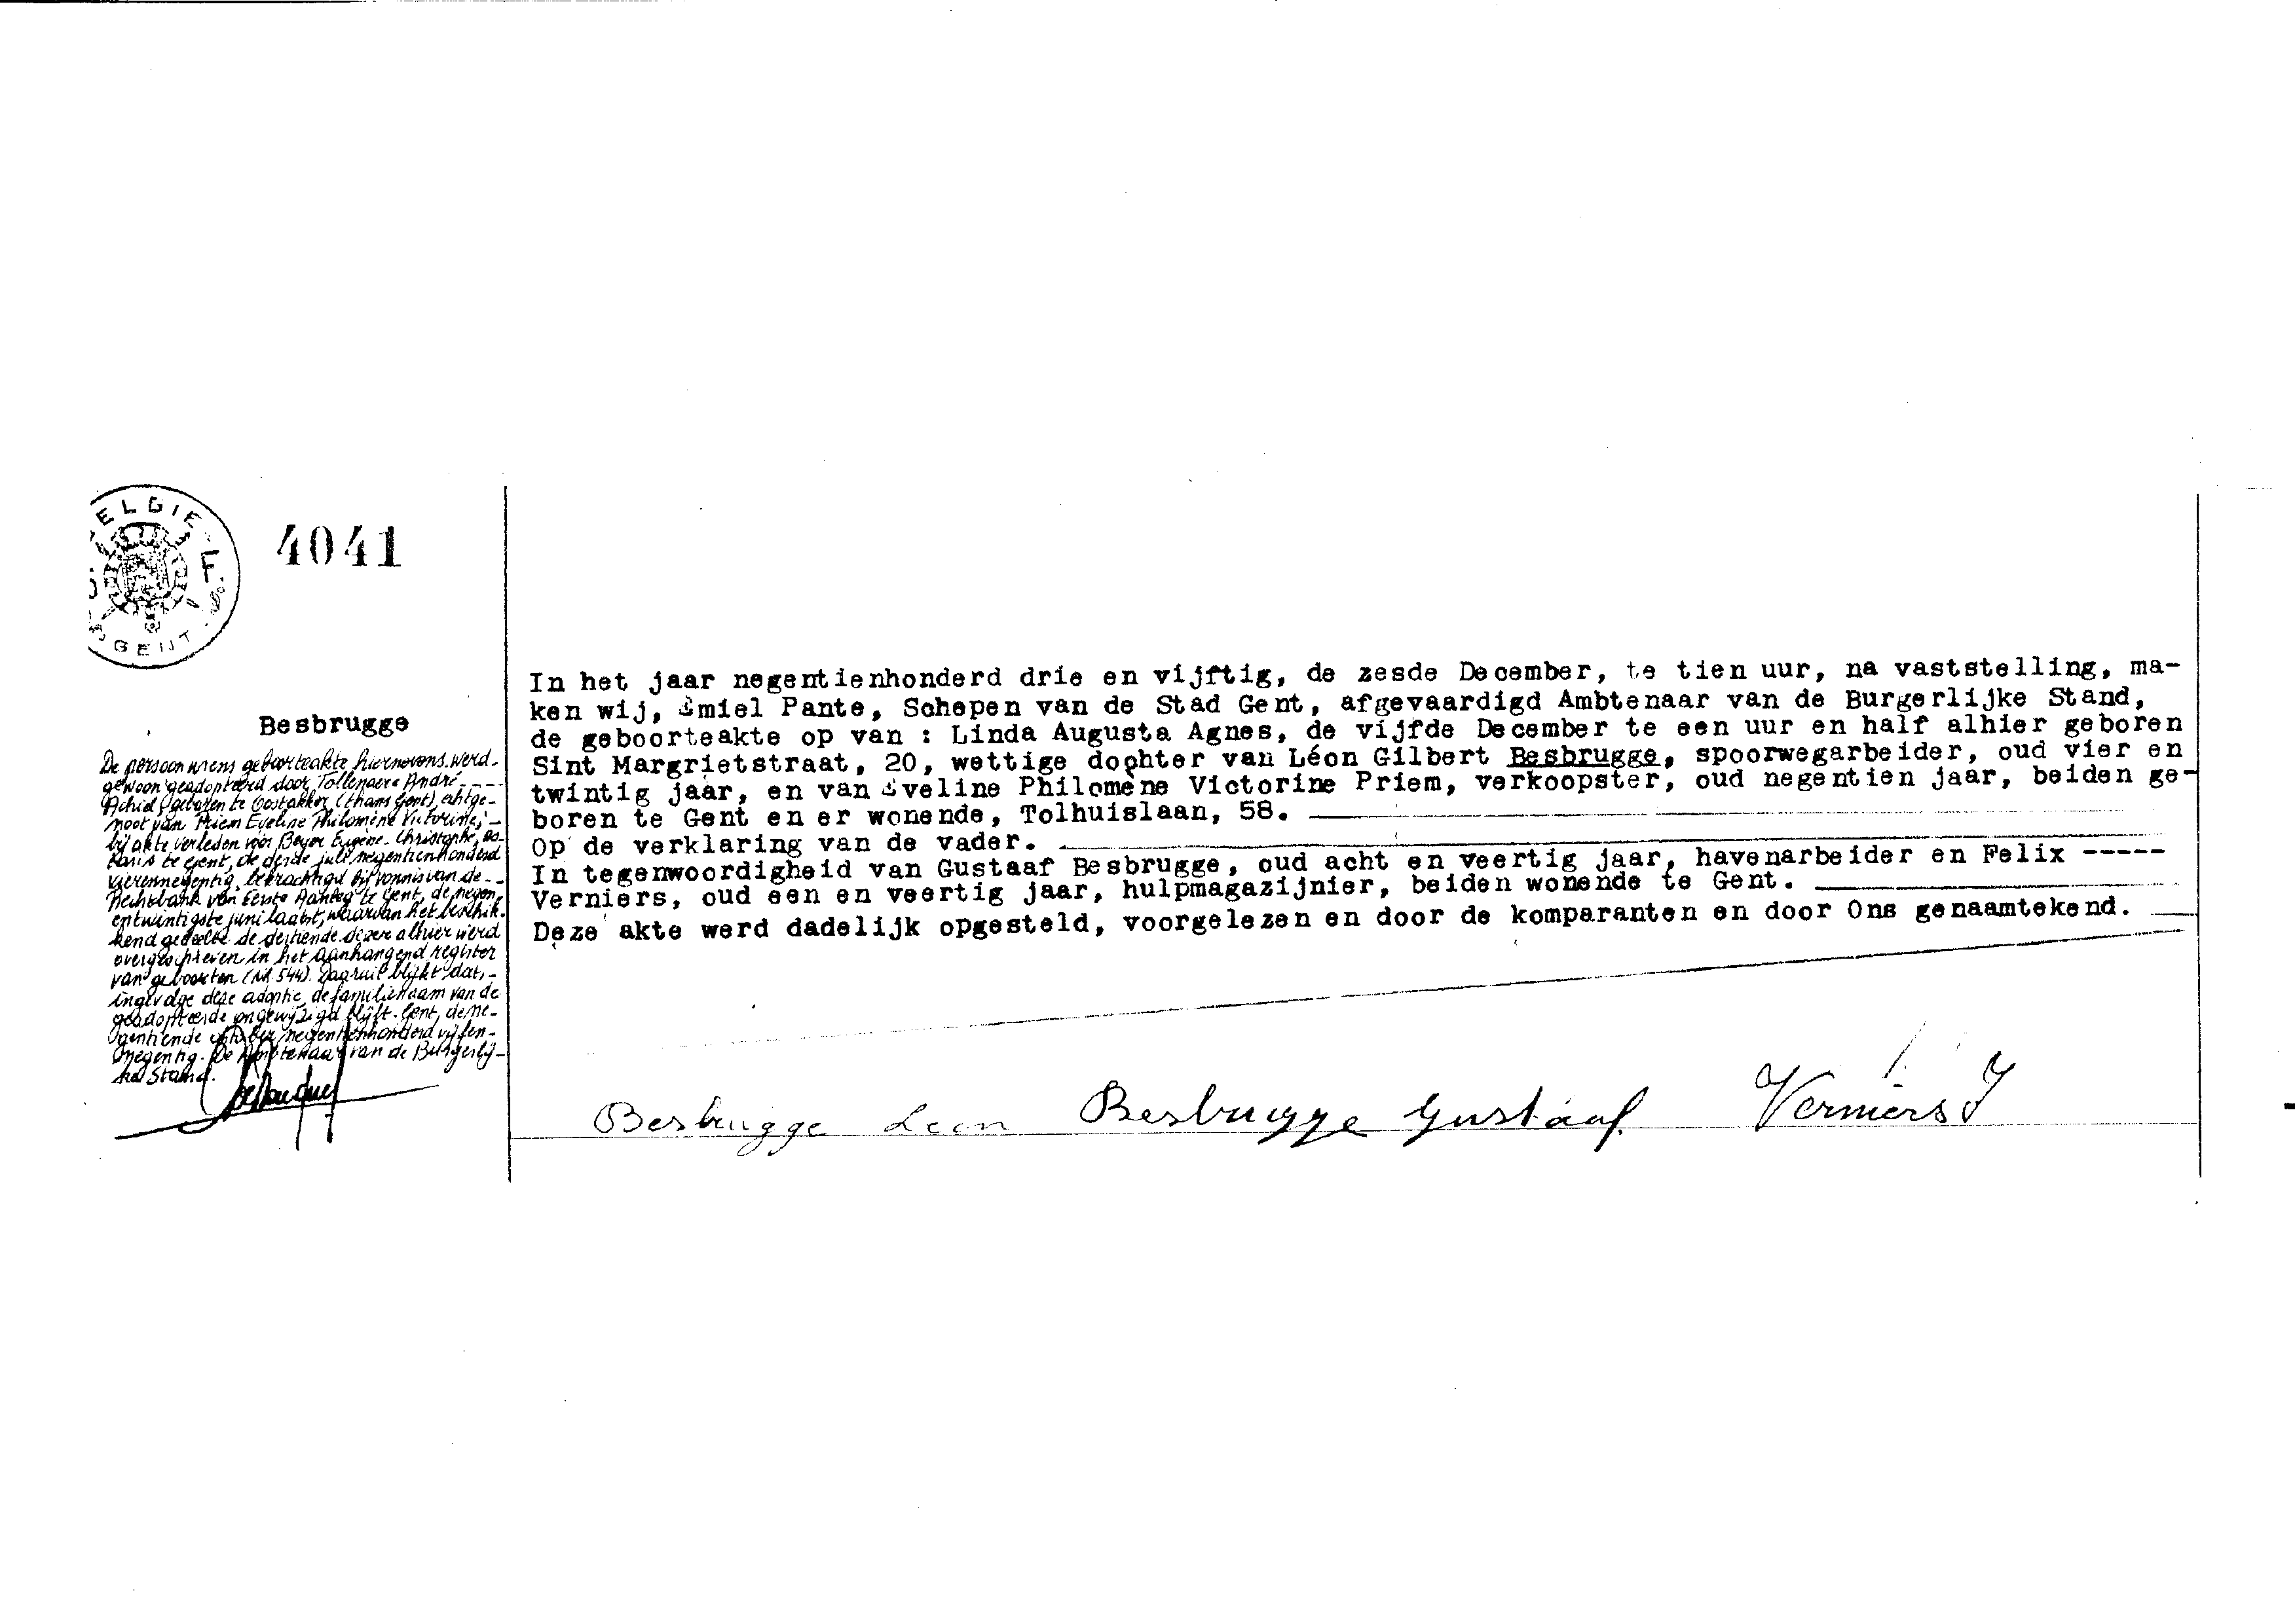 ELGIE
GENT
4041
Besbrugge
De persoon wiens geboorteakte hiernevens werd
gewoon geadopteerd door Tollenaere André
Achiel geboren te Oostakker (thans Gent), echtge-
noot van Priem Eveline Philomène Victorine,
bij akte verleden voor Beyer Eugène-Christophe, no-
taris te Gent, de derde juli negentienhonderd
vierennegentig, bekrachtigd bij vonnis van de
Rechtbank van Eerste Aanleg te Gent, de negen-
entwintigste juni laatst, waarvan het beschik-
kend gedeelte de dertiende dezer alhier werd
overgeschreven in het aanhangend register
van geboorten (nr. 544). Daaruit blijkt dat,
ingevolge deze adoptie, de familienaam van de
geadopteerde ongewijzigd blijft. Gent, de ne-
gentiende oktober negentienhonderd vijfen-
negentig. De Ambtenaar van de Burgerlij-
ke Stand.
In het jaar negentienhonderd drie en vijftig, de zesde December, te tien uur, na vaststelling, ma-
ken wij, Emiel Pante, Schepen van de Stad Gent, afgevaardigd Ambtenaar van de Burgerlijke Stand,
de geboorteakte op van : Linda Augusta Agnes, de vijfde December te een uur en half alhier geboren
Sint Margrietstraat, 20, wettige dochter van Léon Gilbert Besbrugge, spoorwegarbeider, oud vier en
twintig jaar, en van Eveline Philomène Victorine Priem, verkoopster, oud negentien jaar, beiden ge-
boren te Gent en er wonende, Tolhuislaan, 58.
Op de verklaring van de vader.
In tegenwoordigheid van Gustaaf Besbrugge, oud acht en veertig jaar, havenarbeider en Felix -----
Verniers, oud een en veertig jaar, hulpmagazijnier, beiden wonende te Gent.
Deze akte werd dadelijk opgesteld, voorgelezen en door de komparanten en door Ons genaamtekend.
Besbrugge Leon Besbrugge Gustaaf Verniers F